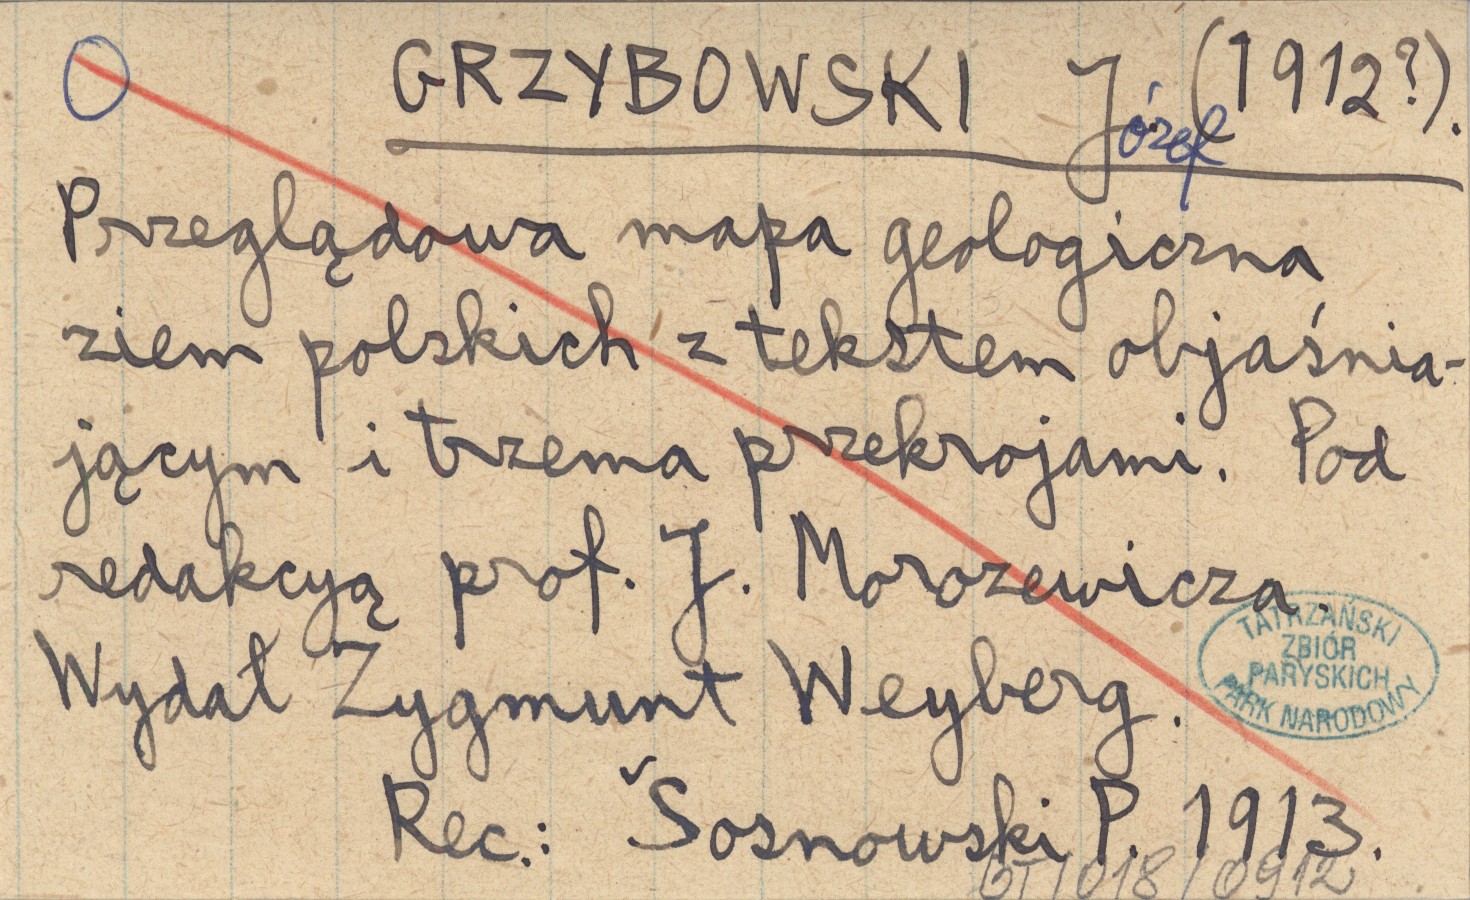 GRZYBOWSKI Józef (1912?).
Przeglądowa mapa geologiczna
ziem polskich z tekstem objaśnia-
jącym i trzema przekrojami. Pod
redakcyą prof. J. Morozewicza.
Wydał Zygmunt Weyberg.
TATRZAŃSKI
ZBIÓR
PARYSKICH
PARK NARODOWY
Rec.: Sosnowski P. 1913.
BT/018/0912